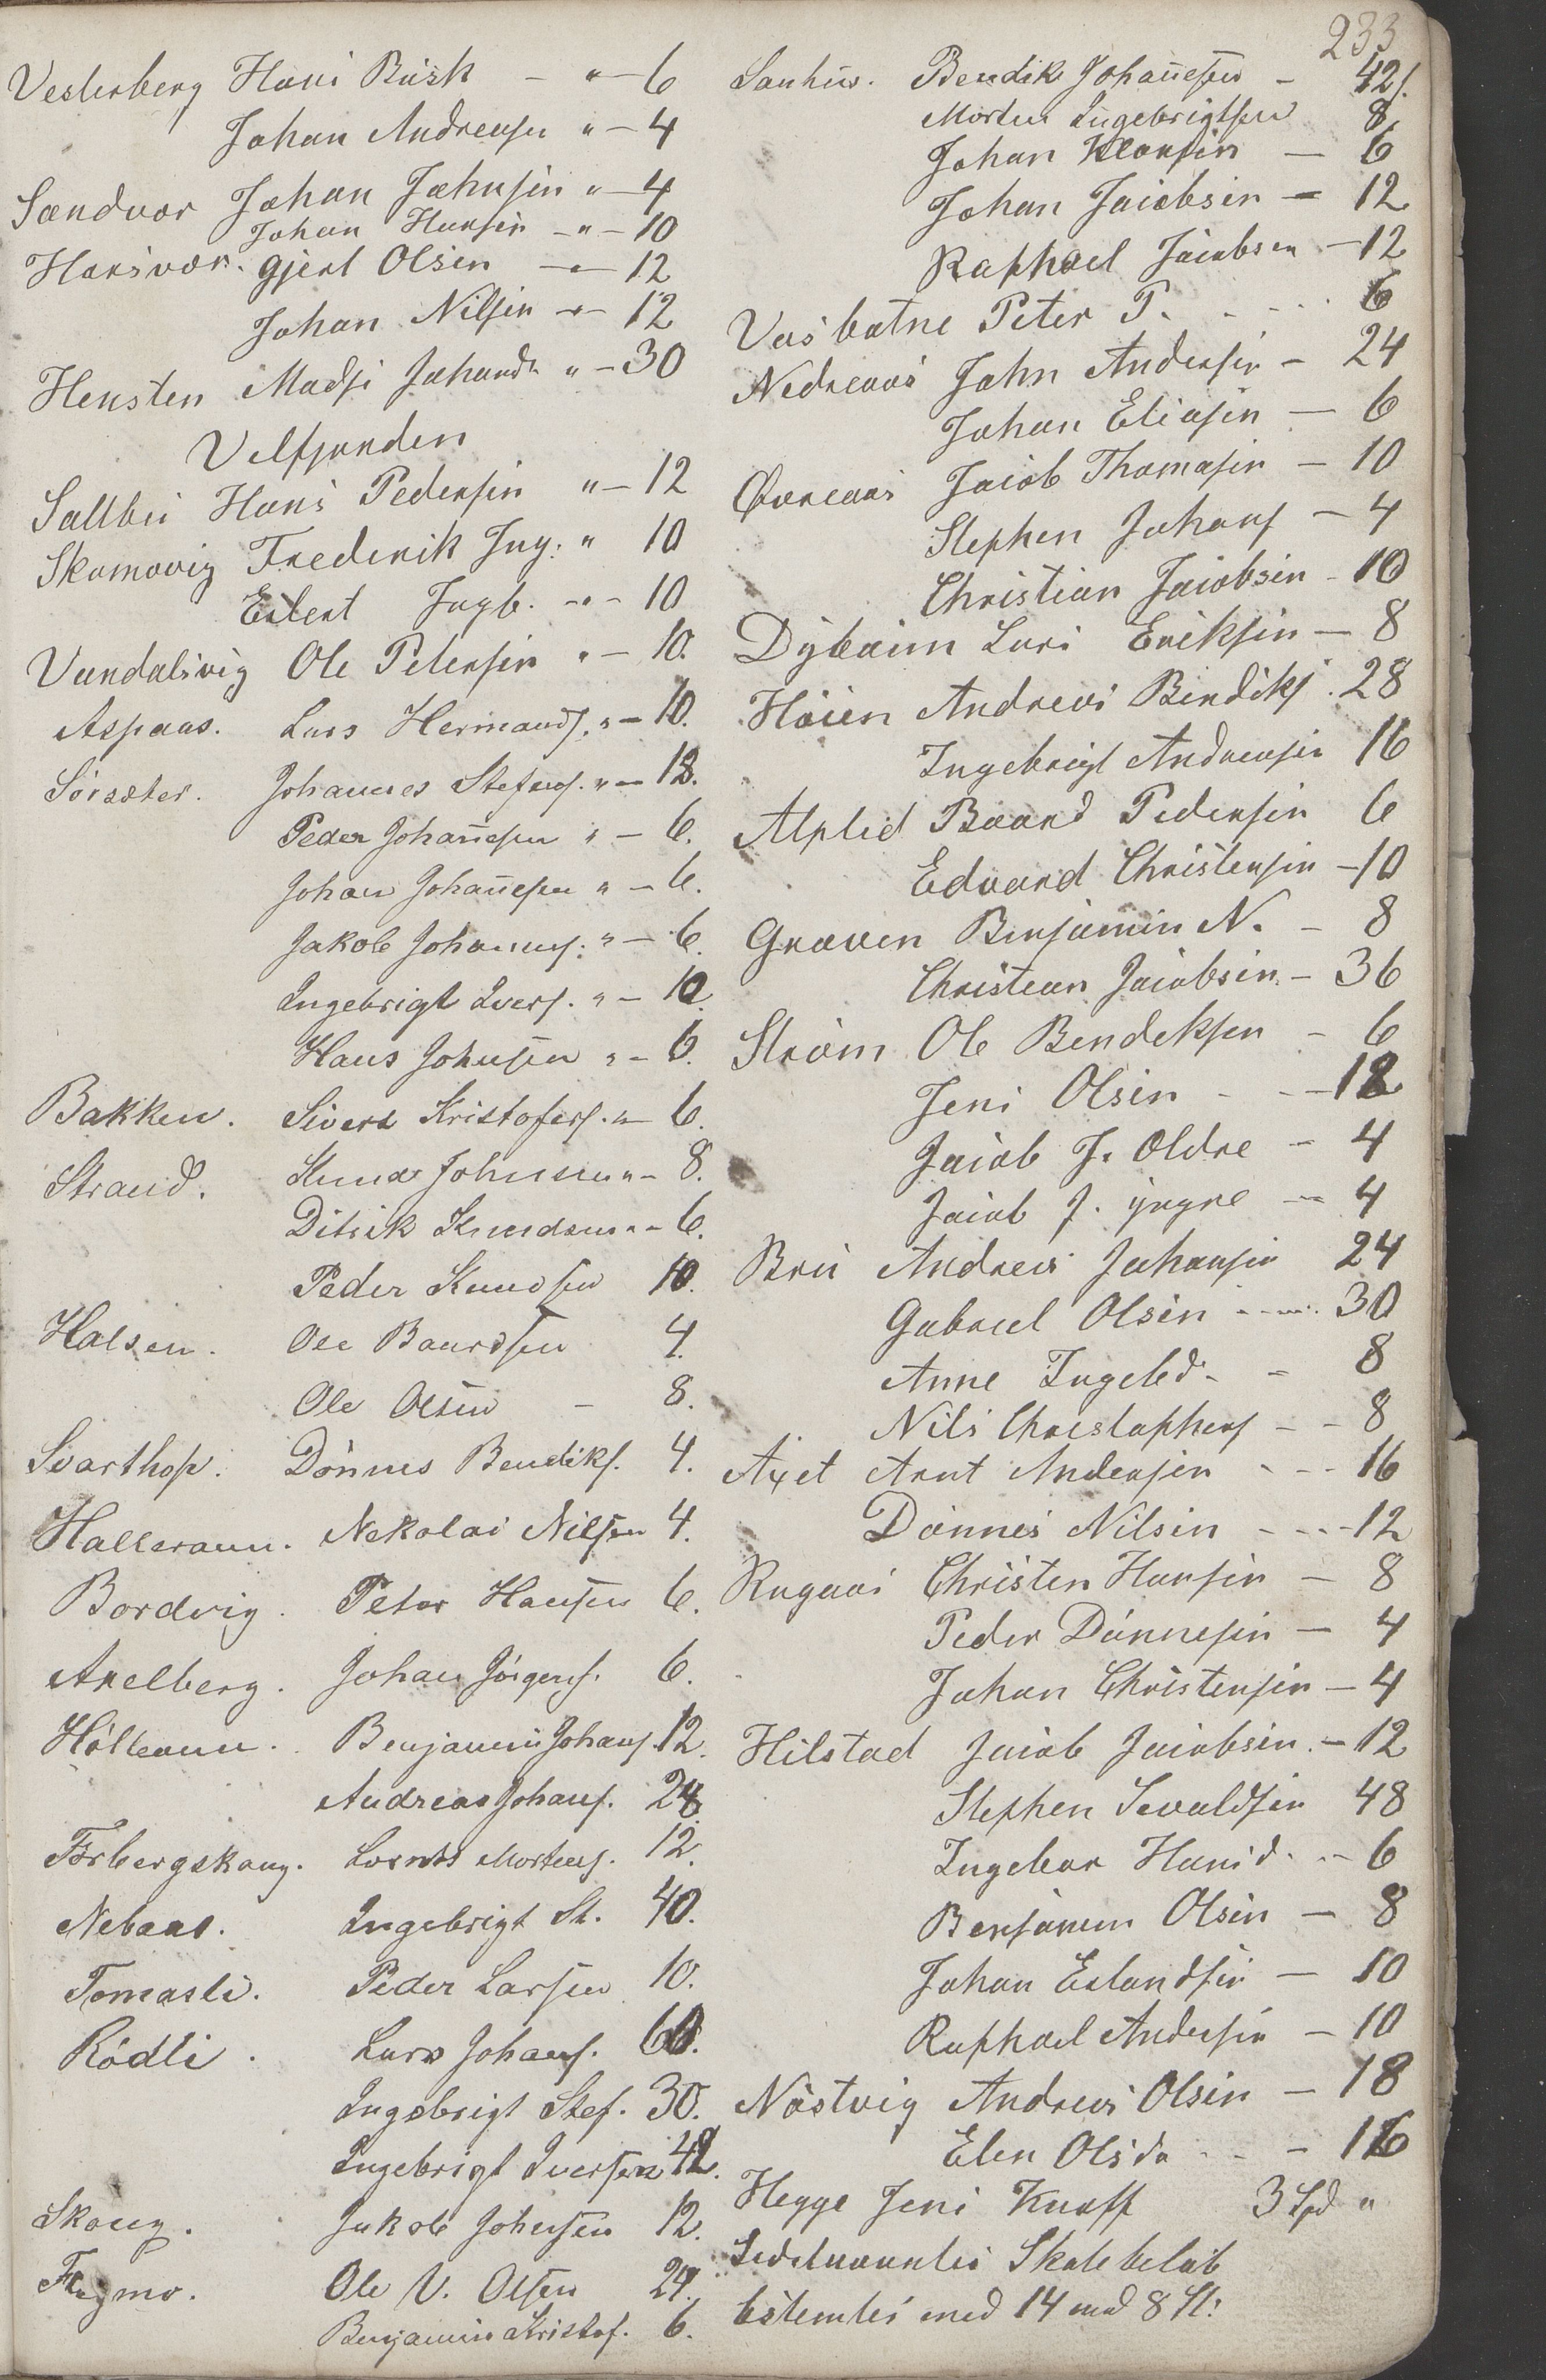 233
Vesterberg Hans Busk - " - 6
Johan Andreasen " - 4
Sandvær Johan Johnsen " - 4
Johan Hansen - " - 10
Hansvær. Gjert Olsen - " - 12
Johan Nilsen - " - 12
Hensten Mads Johands " - 30
Velfjorden
Saltbu Hans Pedersen " - 12
Skomovig Frederik Ing: " 10
Eilert Ingb. - " - 10
Vandalsvig Ole Petersen " - 10.
Aspaas. Lars Hermands. " - 10.
Sörsæter. Johannes Stefens. " - 18.
Peder Johan̄esen " - 6.
Johan Johan̄esen " - 6.
Jakob Johannes. " - 6.
Ingebrigt Ivers. " - 10.
Hans Johnsen " - 6.
Bakken. Sivert Kristofers. " - 6.
Strand. Knud Johnsen " - 8.
Ditrik Knudsen " - 6.
Peder Knudsen 10.
Halsen. Ole Baardsen 4.
Ole Olsen - 8.
Svarthop. Dönnes Bendiks. 4.
Hallevann. Nekolai Nilsen 4.
Bordvig. Peter Hansen 6.
Axelberg. Johan Jörgens. 6.
Höllevann. Benjamin Johans. 12.
Andreas Johans. 24
Forbergskaug. Lornts Mortens. 12.
Nebaas. Ingebrigt St. 40.
Tomasli. Peder Larsen 10.
Rödli. Lars Johans. 60.
Ingebrigt Stef. 30.
Ingebrigt Iversen 42.
Skaug. Jakob Johnsen 12.
Flegmo. Ole V. Olsen 24.
Benjamin Kristof. 6.
Sanhus. Bendik Johan̄esen - 42/.
Morten Ingebrigtsen 8,
Johan Klausen - 6
Johan Jacobsen - 12
Raphael Jacobsen - 12
Vasbotne Peter P. - - - 6
Nedreaas John Andersen - 24
Johan Eliasen - 6
Øvreaas Jacob Thomasen - 10
Stephen Johans - 4
Christian Jacobsen - 10
Dybvann Lars Eriksen - 8
Höien Andreas Bendiks. 28
Ingebrigt Andreasen 16
Alplid Baard Pedersen 6
Edvard Christensen - 10
Graven Benjamin N. - 8
Christian Jacobsen - 36
Ström Ole Bendiksen - 6
Jens Olsen - - 12
Jacob J. Oldre - 4
Jacob J. yngre - 4
Bru Andreas Johansen 24
Gabriel Olsen - - 30
Anne Ingebd. - 8
Nils Christophers - - 8
Axet Arnt Andersen - - - 16
Dönnes Nilsen - - - 12
Rugaas Christen Hansen - 8
Peder Dönnesen - 4
Johan Christensen - 4
Hilstad Jacob Jacobsen. - 12
Stephen Sevaldsen 48
Ingebor Hansd. - - 6
Benjamin Olsen - 8
Johan Erlandsen - 10
Raphael Andersen - 10
Nöstvig Andreas Olsen - 18
Elen Olsda - - - 16
Hegge Jens Knoff 3 Spd "
Skatebelöb
bestemtes med 14 med 8 St: